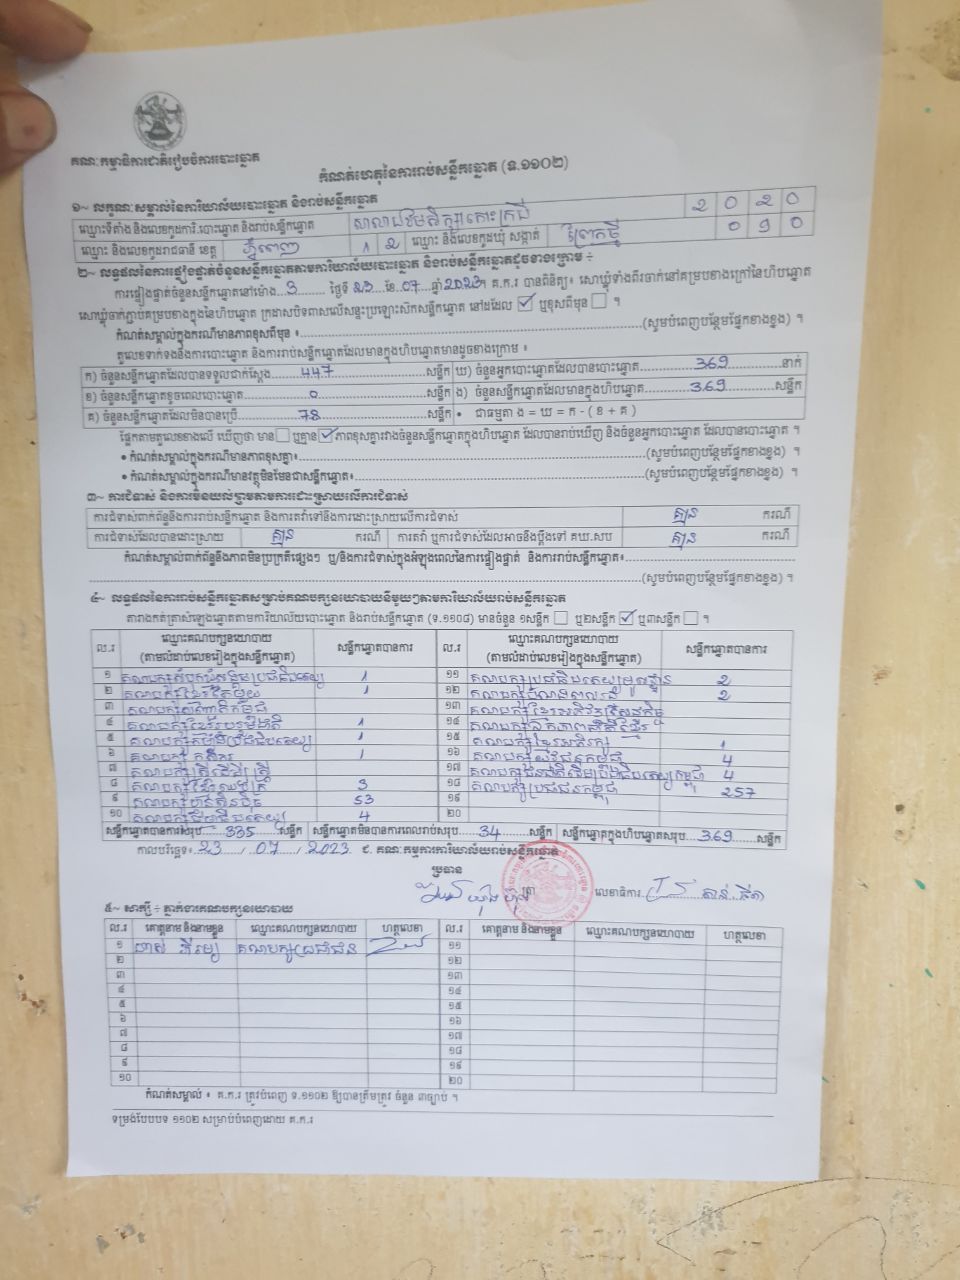 គណៈកម្មាធិការជាតិរៀបចំការបោះឆ្នោត
កំណត់ហេតុនៃការរាប់សន្លឹកឆ្នោត (ទ.១១០២)
១~ លក្ខណៈសម្គាល់នៃការិយាល័យបោះឆ្នោត និងរាប់សន្លឹកឆ្នោត
ឈ្មោះទីតាំង និងលេខកូដការិ.បោះឆ្នោត និងរាប់សន្លឹកឆ្នោត សាលាបឋមសិក្សាកោះក្រពី 2 0 2 0
ឈ្មោះ និងលេខកូដរាជធានី ខេត្ត ភ្នំពេញ 1 2 ឈ្មោះ និងលេខកូដឃុំ សង្កាត់ ព្រែកថ្មី 0 9 0
២~ លទ្ធផលនៃការផ្ទៀងផ្ទាត់ចំនួនសន្លឹកឆ្នោតតាមការិយាល័យបោះឆ្នោត និងរាប់សន្លឹកឆ្នោតដូចខាងក្រោម ÷
ការផ្ទៀងផ្ទាត់ចំនួនសន្លឹកឆ្នោតនៅម៉ោង 3 ថ្ងៃទី 23 ខែ 07 ឆ្នាំ 2023។ គ.ក.រ បានពិនិត្យ៖ សោឃ្លុំទាំងពីរចាក់នៅគម្របខាងក្រៅនៃហិបឆ្នោត
សោឃ្លុំចាក់ភ្ជាប់គម្របខាងក្នុងនៃហិបឆ្នោត ក្រដាសបិទពាសលើសន្ទះប្រឡោះសិកសន្លឹកឆ្នោត នៅដដែល ☑ ឬខុសពីមុន ☐ ។
កំណត់សម្គាល់ក្នុងករណីមានភាពខុសពីមុន ៖ (សូមបំពេញបន្ថែមផ្នែកខាងខ្នង) ។
តួលេខទាក់ទងនឹងការបោះឆ្នោត និងការរាប់សន្លឹកឆ្នោតដែលមានក្នុងហិបឆ្នោតមានដូចខាងក្រោម ៖
ក) ចំនួនសន្លឹកឆ្នោតដែលបានទទួលជាក់ស្តែង 447 សន្លឹក ឃ) ចំនួនអ្នកបោះឆ្នោតដែលបានបោះឆ្នោត 369 នាក់
ខ) ចំនួនសន្លឹកឆ្នោតខូចពេលបោះឆ្នោត 0 សន្លឹក ង) ចំនួនសន្លឹកឆ្នោតដែលមានក្នុងហិបឆ្នោត 369 សន្លឹក
គ) ចំនួនសន្លឹកឆ្នោតដែលមិនបានប្រើ 78 សន្លឹក • ជាធម្មតា ង = ឃ = ក - ( ខ + គ )
ផ្អែកតាមតួលេខខាងលើ ឃើញថា មាន ☐ ឬគ្មាន ☑ ភាពខុសគ្នារវាងចំនួនសន្លឹកឆ្នោតក្នុងហិបឆ្នោត ដែលបានរាប់ឃើញ និងចំនួនអ្នកបោះឆ្នោត ដែលបានបោះឆ្នោត ។
• កំណត់សម្គាល់ក្នុងករណីមានភាពខុសគ្នា៖ (សូមបំពេញបន្ថែមផ្នែកខាងខ្នង) ។
• កំណត់សម្គាល់ក្នុងករណីមានវត្ថុមិនមែនជាសន្លឹកឆ្នោត៖ (សូមបំពេញបន្ថែមផ្នែកខាងខ្នង) ។
៣~ ការជំទាស់ និងការមិនយល់ព្រមតាមការដោះស្រាយលើការជំទាស់
ការជំទាស់ពាក់ព័ន្ធនឹងការរាប់សន្លឹកឆ្នោត និងការតវ៉ាទៅនឹងការដោះស្រាយលើការជំទាស់ គ្មាន ករណី
ការជំទាស់ដែលបានដោះស្រាយ គ្មាន ករណី ការតវ៉ា ឬការជំទាស់ដែលអាចនឹងប្តឹងទៅ គឃ.សប គ្មាន ករណី
កំណត់សម្គាល់ពាក់ព័ន្ធនឹងភាពមិនប្រក្រតីផ្សេងៗ ឬ/និងការជំទាស់ក្នុងអំឡុងពេលនៃការផ្ទៀងផ្ទាត់ និងការរាប់សន្លឹកឆ្នោត៖
(សូមបំពេញបន្ថែមផ្នែកខាងខ្នង) ។
៤~ លទ្ធផលនៃការរាប់សន្លឹកឆ្នោតសម្រាប់គណបក្សនយោបាយនីមួយៗតាមការិយាល័យរាប់សន្លឹកឆ្នោត
តារាងកត់ត្រាសំឡេងឆ្នោតតាមការិយាល័យបោះឆ្នោត និងរាប់សន្លឹកឆ្នោត (ទ.១១០៨) មានចំនួន ១សន្លឹក ☐ ឬ២សន្លឹក ☑ ឬ៣សន្លឹក ☐ ។
ល.រ ឈ្មោះគណបក្សនយោបាយ (តាមលំដាប់លេខរៀងក្នុងសន្លឹកឆ្នោត) សន្លឹកឆ្នោតបានការ ល.រ ឈ្មោះគណបក្សនយោបាយ (តាមលំដាប់លេខរៀងក្នុងសន្លឹកឆ្នោត) សន្លឹកឆ្នោតបានការ
១ គណបក្សសំបុកឃ្មុំសង្គមប្រជាធិបតេយ្យ 1 ១១ គណបក្សប្រជាធិបតេយ្យមូលដ្ឋាន 2
២ គណបក្សខ្មែរតែមួយ 1 ១២ គណបក្សកម្លាំងពលរដ្ឋ 2
៣ គណបក្សសញ្ជាតិកម្ពុជា ១៣ គណបក្សខ្មែរអភិវឌ្ឍន៍សេដ្ឋកិច្ច
៤ គណបក្សខ្មែររួបរួមជាតិ 1 ១៤ គណបក្សឯកភាពជាតិខ្មែរ
៥ គណបក្សកម្លាំងប្រជាធិបតេយ្យ 1 ១៥ គណបក្សខ្មែរអភិរក្ស 1
៦ គណបក្ស កសិករ 1 ១៦ គណបក្សយុវជនកម្ពុជា 4
៧ គណបក្សស្ត្រីដើម្បីស្ត្រី ១៧ គណបក្សជនជាតិដើមប្រជាធិបតេយ្យកម្ពុជា 4
៨ គណបក្សខ្មែរឈប់ក្រ 3 ១៨ គណបក្សប្រជាជនកម្ពុជា 257
៩ គណបក្សហ៊្វុនស៊ិនប៉ិច 53 ១៩
១០ គណបក្សធម្មាធិបតេយ្យ 4 ២០
សន្លឹកឆ្នោតបានការសរុប 335 សន្លឹក សន្លឹកឆ្នោតមិនបានការពេលរាប់សរុប 34 សន្លឹក សន្លឹកឆ្នោតក្នុងហិបឆ្នោតសរុប 369 សន្លឹក
កាលបរិច្ឆេទ៖ 23 / 07 / 2023 ជ. គណៈកម្មការការិយាល័យរាប់សន្លឹកឆ្នោត
ប្រធាន
លេខាធិការ
៥~ សាក្សី ÷ ភ្នាក់ងារគណបក្សនយោបាយ
ល.រ គោត្តនាម និងនាមខ្លួន ឈ្មោះគណបក្សនយោបាយ ហត្ថលេខា ល.រ គោត្តនាម និងនាមខ្លួន ឈ្មោះគណបក្សនយោបាយ ហត្ថលេខា
១ ចាស់ ភីរម្យ គណបក្សប្រជាជន ១១
២ ១២
៣ ១៣
៤ ១៤
៥ ១៥
៦ ១៦
៧ ១៧
៨ ១៨
៩ ១៩
១០ ២០
កំណត់សម្គាល់ ៖ គ.ក.រ ត្រូវបំពេញ ទ.១១០២ ឱ្យបានត្រឹមត្រូវ ចំនួន ៣ច្បាប់ ។
ទម្រង់បែបបទ ១១០២ សម្រាប់បំពេញដោយ គ.ក.រ